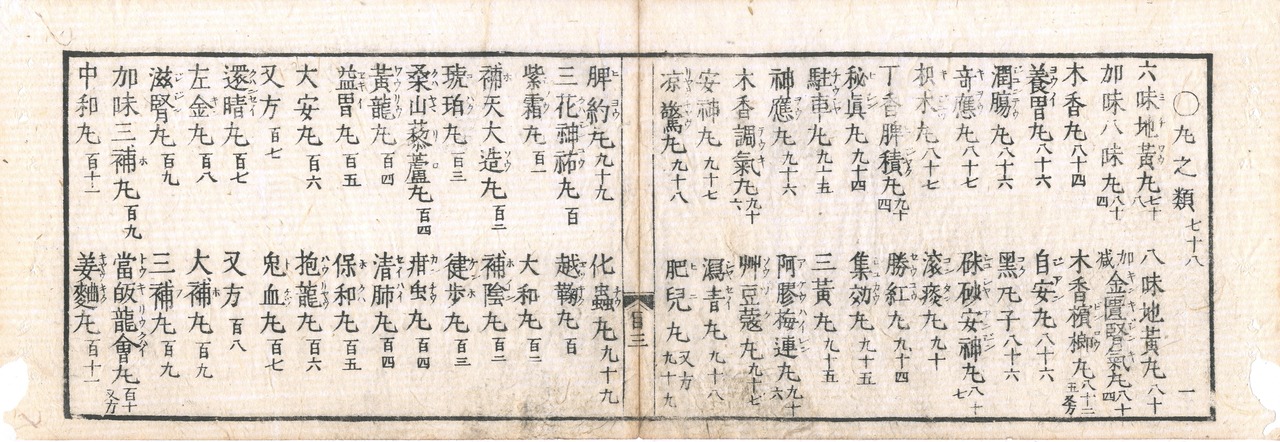 〇丸之類 七十八 一
六味地黄丸 七十八 八味地黄丸 八十
加味八味丸 八十四 加減金匱腎氣丸 八十四
木香丸 八十四 木香檳榔丸 八十二 五 又方
養胃丸 八十六 自安丸 八十六
潤腸丸 八十六 黑丸子 八十六
竒應丸 八十七 硃砂安神丸 八十七
枳朮丸 八十七 滚痰丸 九十
丁香脾積丸 九十四 勝紅丸 九十四
秘眞丸 九十四 集効丸 九十五
駐車丸 九十五 三黄丸 九十五
神應丸 九十六 阿膠梅連丸 九十六
木香調氣丸 九十六 艸豆蔲丸 九十七
安神丸 九十七 瀉青丸 九十八
凉驚丸 九十八 肥兒丸 又方 九十九
脾約丸 九十九 化蟲丸 九十九
三花神祐丸 百 越鞠丸 百
紫霜丸 百一 大和丸 百二
補天大造丸 百二 補陰丸 百二
琥珀丸 百三 健步丸 百三
桑山藜蘆丸 百四 疳虫丸 百四
黄龍丸 百四 清肺丸 百四
益胃丸 百五 保和丸 百五
大安丸 百六 抱龍丸 百六
又方 百七 鬼血丸 百七
還晴丸 百七 又方 百八
左金丸 百八 大補丸 百九
滋腎丸 百九 三補丸 百九
加味三補丸 百九 當皈龍會丸 百十 又方
中和丸 百十一 姜麯丸 百十一
目三